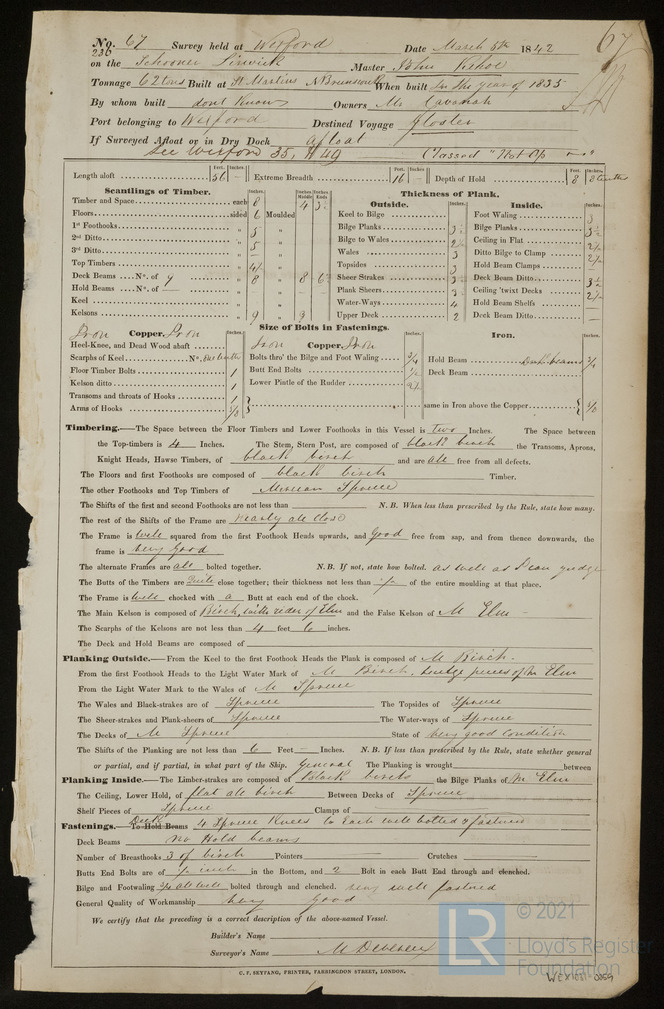 No. 67 Survey held at Wexford Date March 8th 1842 67
236
on the Schooner Master John Kehoe
Tonnage 62 tons Built at St Martins N Brunswick When built In the year of 1835
By whom built dont know Owners Mr Cavanah
Port belonging to Wexford Destined Voyage Gloster
If Surveyed Afloat or in Dry Dock Afloat
See Wexford 35, 49 Classed "Not
Length aloft Feet. Inches. 56 — Extreme Breadth Feet. Inches 16 — Depth of Hold Feet. Inches. 8 8
Scantlings of Timber. Inches. Inches Middle Inches Ends
Thickness of Plank.
Outside. Inches. Inside. Inches.
Timber and Space each 8 4 Keel to Bilge Foot Waling 3
Floors sided 6 Moulded Bilge Planks Bilge Planks
1st Foothooks " 5 " Bilge to Wales Ceiling in Flat
2nd Ditto " 5 " Wales 3 Ditto Bilge to Clamp
3rd Ditto " — " Topsides 3 Hold Beam Clamps —
Top Timbers " " Sheer Strakes Deck Beam Ditto
Deck Beams No. of 9 " 8 " 8 6 Plank Sheers Ceiling 'twixt Decks
Hold Beams No. of — " " Water-Ways 4 Hold Beam Shelfs —
Keel " " Upper Deck 2 Deck Beam Ditto —
Kelsons " 9 " 9
Size of Bolts in Fastenings.
Iron Copper. Iron Inches. Iron Copper. Iron Inches. Iron. Inches.
Heel-Knee, and Dead Wood abaft
Scarphs of Keel No. Bolts thro' the Bilge and Foot Waling 3/4 Hold Beam Deck beams 3/4
Floor Timber Bolts 1 Butt End Bolts Deck Beam
Kelson ditto 1 Lower Pintle of the Rudder
Transoms and throats of Hooks 1
Arms of Hooks same in Iron above the Copper
Timbering.—The Space between the Floor Timbers and Lower Foothooks in this Vessel is Two Inches. The Space between
the Top-timbers is 4 Inches. The Stem, Stern Post, are composed of black birch the Transoms, Aprons,
Knight Heads, Hawse Timbers, of black birch and are all free from all defects.
The Floors and first Foothooks are composed of black birch Timber.
The other Foothooks and Top Timbers of Merican Spruce
The Shifts of the first and second Foothooks are not less than N. B. When less than prescribed by the Rule, state how many.
The rest of the Shifts of the Frame are nearly all close
The Frame is well squared from the first Foothook Heads upwards, and Good free from sap, and from thence downwards, the
frame is very Good
The alternate Frames are all bolted together. N. B. If not, state how bolted. as well as I can judge
The Butts of the Timbers are Quite close together; their thickness not less than of the entire moulding at that place.
The Frame is well chocked with a Butt at each end of the chock.
The Main Kelson is composed of Birch with rider of Elm and the False Kelson of M Elm
The Scarphs of the Kelsons are not less than 4 feet 6 inches.
The Deck and Hold Beams are composed of
Planking Outside.—From the Keel to the first Foothook Heads the Plank is composed of M Birch.
From the first Foothook Heads to the Light Water Mark of M Birch. bulge pieces of M Elm
From the Light Water Mark to the Wales of M Spruce
The Wales and Black-strakes are of Spruce The Topsides of Spruce
The Sheer-strakes and Plank-sheers of Spruce The Water-ways of Spruce
The Decks of M Spruce State of very good condition
The Shifts of the Planking are not less than 6 Feet — Inches. N. B. If less than prescribed by the Rule, state whether general
or partial, and if partial, in what part of the Ship. General The Planking is wrought between
Planking Inside.—The Limber-strakes are composed of Black birch the Bilge Planks of M Elm
The Ceiling, Lower Hold, of flat all birch Between Decks of Spruce
Shelf Pieces of Spruce Clamps of
Deck
Fastenings.—To Hold Beams 4 Spruce Knees to Each well bolted & fastened
Deck Beams no Hold beams
Number of Breasthooks 3 of birch Pointers Crutches
Butts End Bolts are of inch in the Bottom, and 2 Bolt in each Butt End through and clenched.
Bilge and Footwaling all well bolted through and clenched. very well fastened
General Quality of Workmanship very good
We certify that the preceding is a correct description of the above-named Vessel.
Builder's Name
Surveyor's Name M Devereux
C. F. SEYFANG, PRINTER, FARRINGDON STREET, LONDON.
LR © 2021
Lloyd's Register
Foundation